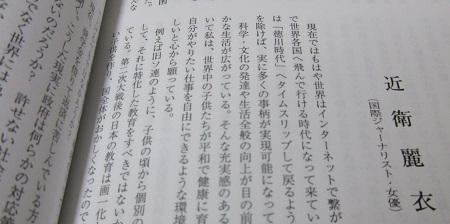 近衛麗衣
（国際ジャーナリスト・女優）
現在ではもはや世界はインターネットで繋が
で世界各国へ飛んで行ける時代になって来てい
「徳川時代」へタイムスリップして戻るよう
を除けば、実に多くの事柄が実現可能になって
科学・文化の発達や生活全般の向上が目の前
かな生活が広がっている。そんな充実感のある
いて私は、世界中の子供たちが平和で健康に育
自分がやりたい仕事を自由にできるような環境
しいと心から願っている。
例えば旧ソ連のように、子供の頃から個別の
して、それに特化した教育をすべきではないか
ている。第二次大戦後の日本の教育は画一化
い子供を作り、国全体がおかしくなったので